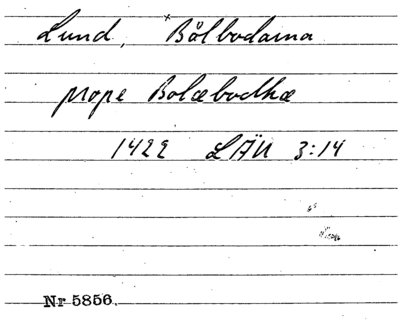 Lund, ×Bölbodarna
prope Bolæbodhæ
1422 LÄU 3:14
Nr 5856.